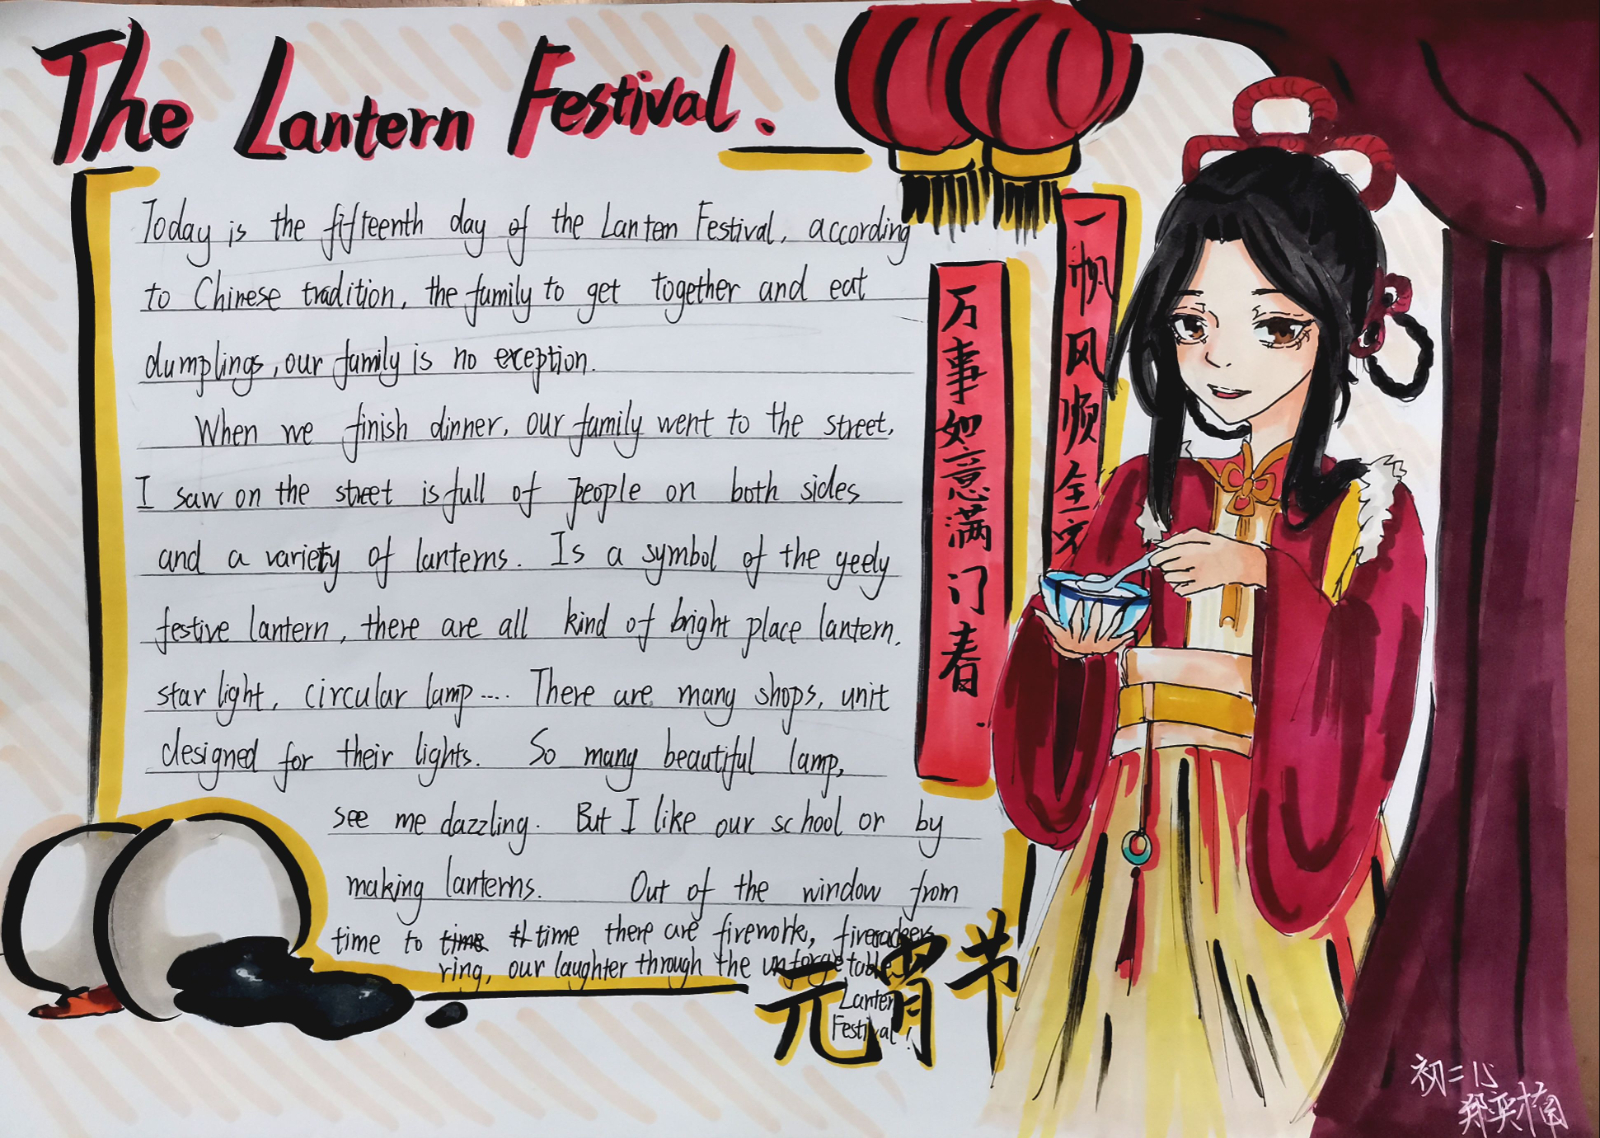 The Lantern Festival.
Today is the fifteenth day of the Lantern Festival, according
to Chinese tradition, the family to get together and eat
dumplings, our family is no exception.
When we finish dinner, our family went to the street,
I saw on the street is full of people on both sides
and a variety of lanterns. Is a symbol of the geely
festive lantern, there are all kind of bright place lantern,
star light, circular lamp.... There are many shops, unit
designed for their lights. So many beautiful lamp,
see me dazzling. But I like our school or by
making lanterns. Out of the window from
time to time there are firework, firecrackers
ring, our laughter through the unforgetable
Lantern
Festival!
元宵节
万事如意满门春
一帆风顺全家
初二
郑奕楠